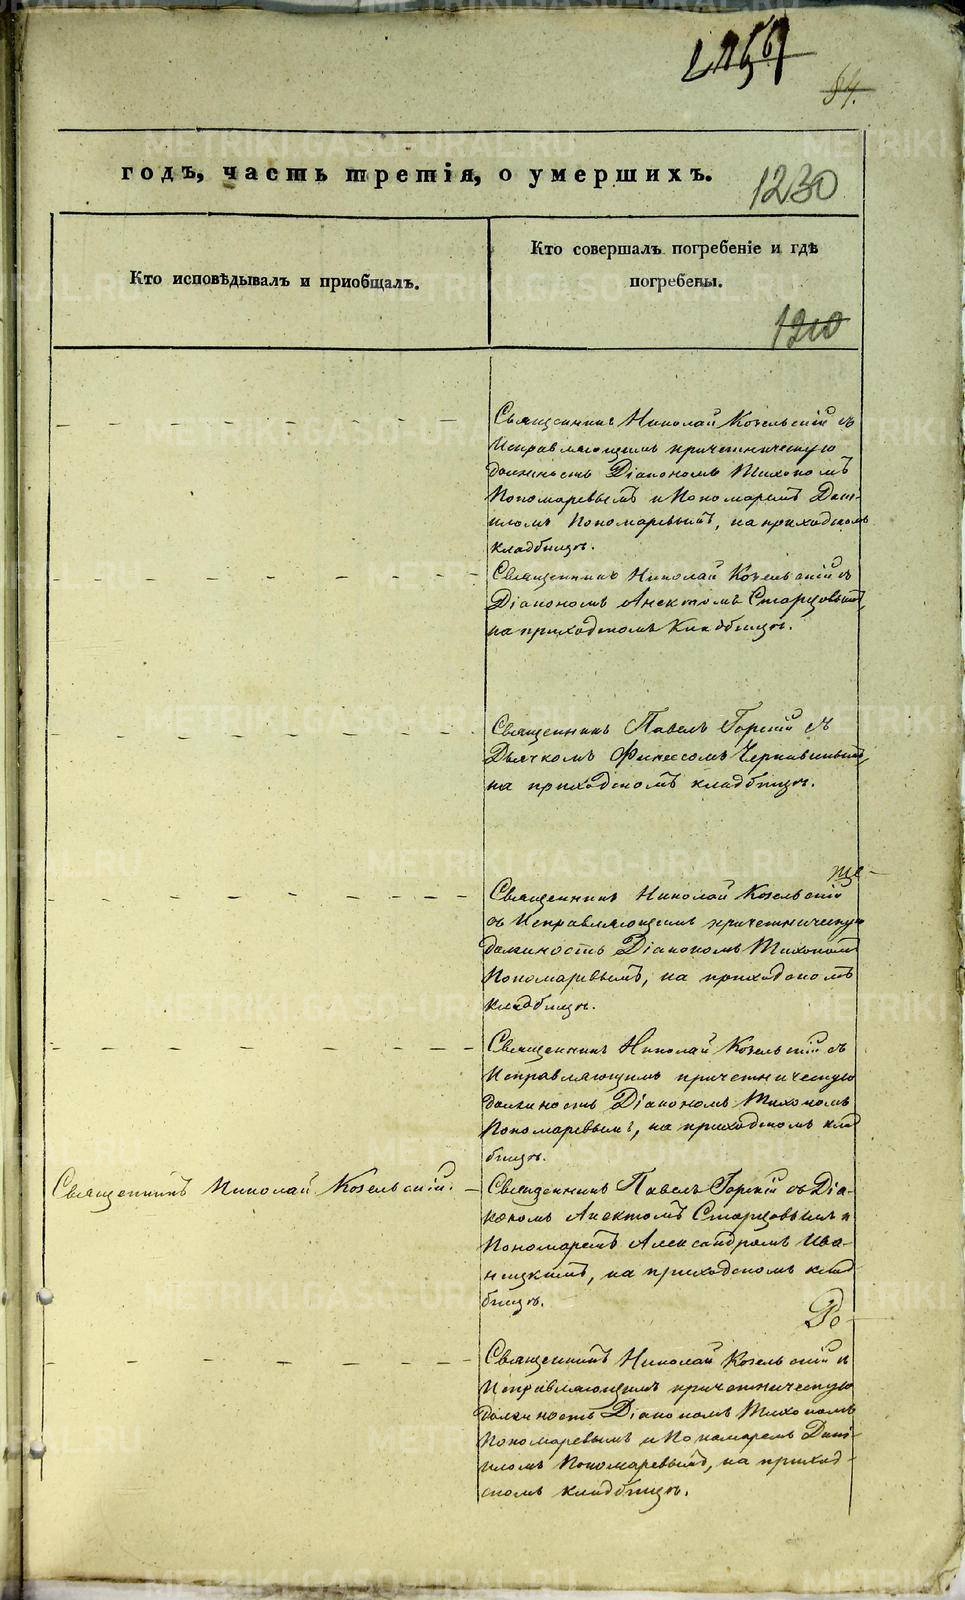 84.
годъ, часть третія, о умершихъ.
1230
Кто исповѣдывалъ и приобщалъ.
Кто совершалъ погребеніе и гдѣ
погребены.
1210
Священникъ Николай Козельскій съ
Исправляющимъ причетническую
должность Діакономъ Тихономъ
Пономаревымъ и Пономаремъ Дани-
иломъ Пономаревымъ, на приходскомъ
кладбищѣ.
Священникъ Николай Козельскій съ
Діакономъ Анектомъ Старцовымъ,
на приходскомъ Кладбищѣ.
Священникъ Павелъ Горскій съ
Дьячкомъ Финеесомъ Чернавинымъ,
на приходскомъ кладбищѣ.
Священникъ Николай Козельскій
съ Исправляющимъ причетническую
должность Діакономъ Тихономъ
Пономаревымъ, на приходскомъ
кладбищѣ.
Священникъ Николай Козельскій съ
Исправляющимъ причетническую
должность Діакономъ Тихономъ
Пономаревымъ, на приходскомъ клад
бищѣ.
Священникъ Николай Козельскій.
Священникъ Павелъ Горскій съ Діа-
кономъ Анектомъ Старцовымъ и
Пономаремъ Александромъ Ива-
ницкимъ, на приходскомъ клад
бищѣ.
Священникъ Николай Козельскій и
Исправляющимъ причетническую
должность Діакономъ Тихономъ
Пономаревымъ и Пономаремъ Дани-
иломъ Пономаревымъ, на приход-
скомъ кладбищѣ.
METRIKI.GASO-URAL.RU